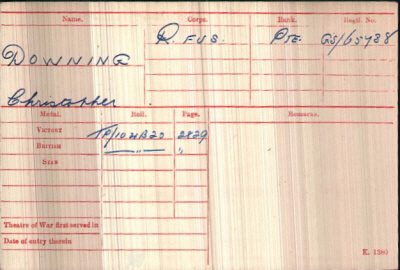 Name. Corps. Rank. Regtl. No.
DOWNING R. FUS. Pte. GS/65738
Christopher
Medal. Roll. Page. Remarks.
VICTORY TP/104B20 2829
BRITISH " "
STAR
Theatre of War first served in
Date of entry therein
K. 1380